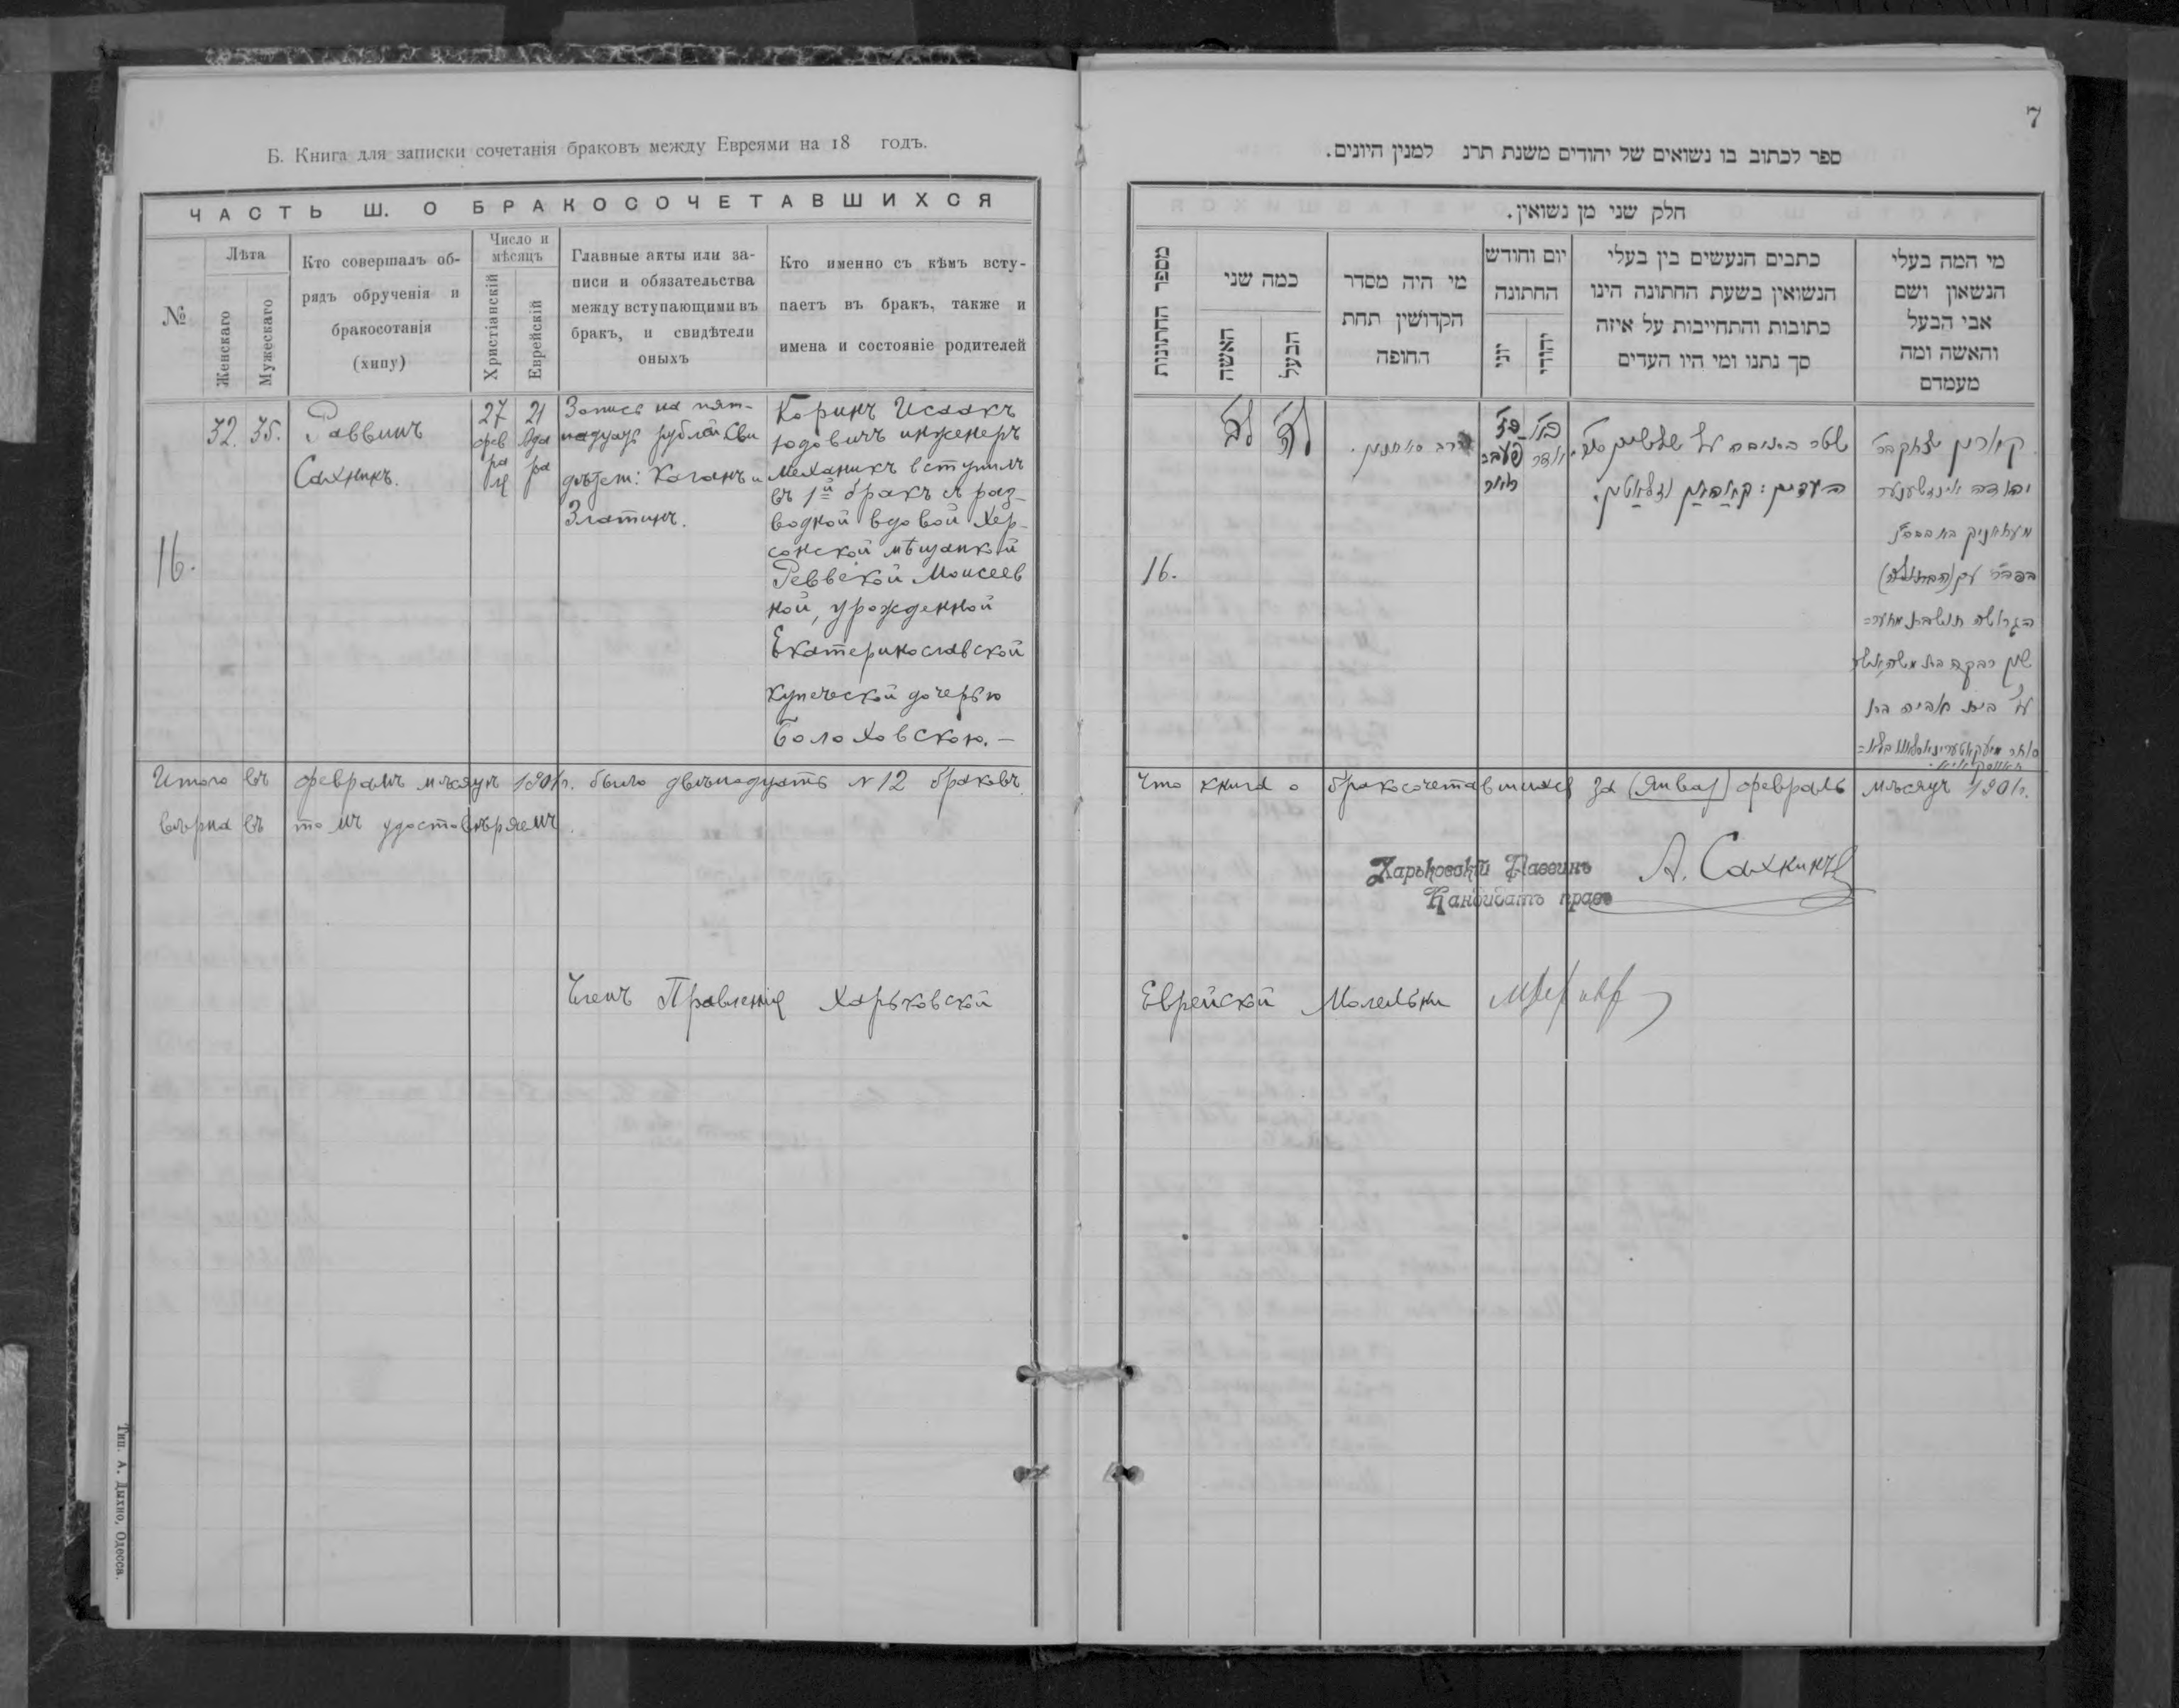 Б. Книга для записки сочетанія браковъ между Евреями на 18 годъ.
ЧАСТЬ Ш. О БРАКОСОЧЕТАВШИХСЯ
№
Лѣта
Женскаго
Мужескаго
Кто совершалъ об-
рядъ обрученія и
бракосотанія
(хипу)
Число и
мѣсяцъ
Христіанскій
Еврейскій
Главные акты или за-
писи и обязательства
между вступающими въ
бракъ, и свидѣтели
оныхъ
Кто именно съ кѣмъ всту-
паетъ въ бракъ, также и
имена и состояніе родителей
16.
32.
35.
Раввинъ
Сахнинъ.
27
фев
ра
ля
21
Ада
ра
Запись на пят-
надцать рублей Сви
дѣтел: Каганъ и
Златинъ.
Коринъ Исаакъ
Юдовичъ инженеръ
механикъ вступилъ
въ 1й бракъ съ раз-
водной вдовой Хер-
сонской мѣщанкой
Реввекой Моисеев
ной, урожденной
Екатеринославской
купеческой дочерью
Болоховскою.—
Итого въ февралѣ мѣсяцѣ 1901г. было двѣнадцать №12 браковъ
вѣрна въ томъ удостовѣряемъ
Членъ Правленія Харьковской
Тип. А. Дыхно, Одесса.
7
ספר לכתוב בו נשואים של יהודים משנת תרנ למנין היונים.
חלק שני מן נשואין.
מספר החתונות
כמה שני
האשה
הבעל
מי היה מסדר
הקדושין תחת
החופה
יום וחודש
החתונה
יוני
יהודי
כתבים הנעשים בין בעלי
הנשואין בשעת החתונה הינו
כתובות והתחייבות על איזה
סך נתנו ומי היו העדים
מי המה בעלי
הנשאון ושם
אבי הבעל
והאשה ומה
מעמדם
16.
לב
לה
הרב סאחנין.
כז
פעב
רואר
כא
אדר
שטר כתובה על
העדים: קאהאן וזלאטין.
קארין יצחק בר
יהודה אינזשענער
מעחאניק
הגרושה תושבת חער=
סאן רבקה בת משה
בית אביה בת
סוחר
Что книга о бракосочетавшихся за (Январ) февраль мѣсяцъ 1901г.
Харьковскій Раввинъ
Кандидатъ правъ
А. Сахнинъ
Еврейской Молельни